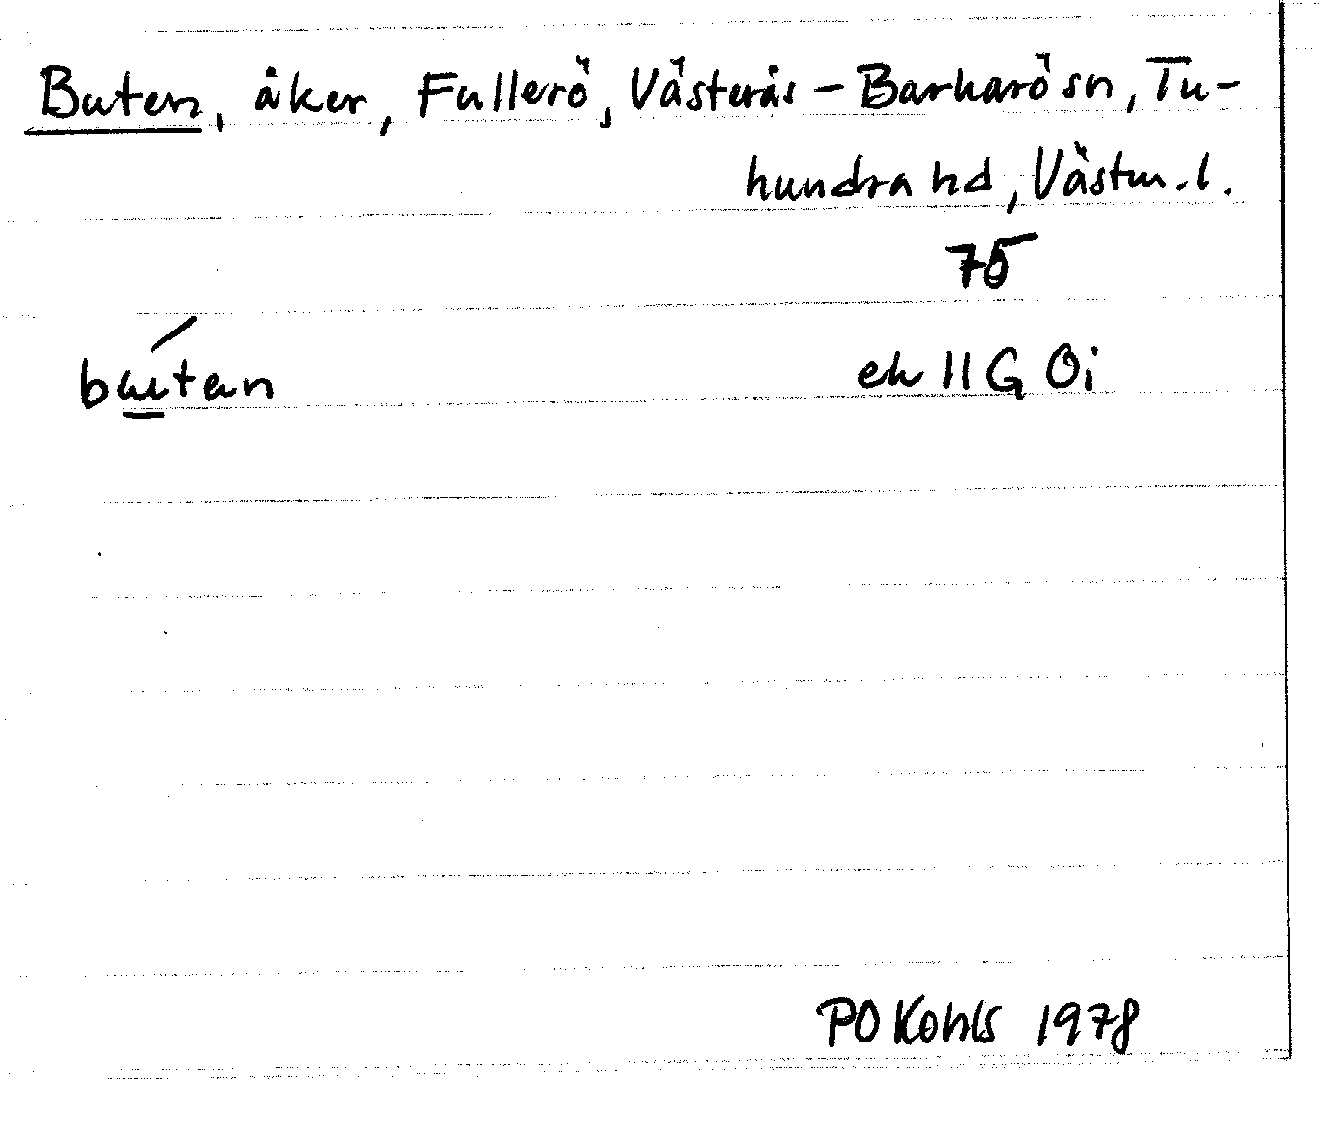 Buten, åker, Fullerö, Västerås-Barkarö sn, Tu-
hundra hd, Västm.l.
75
buten
ek 11G 0i
PO Kohls 1978